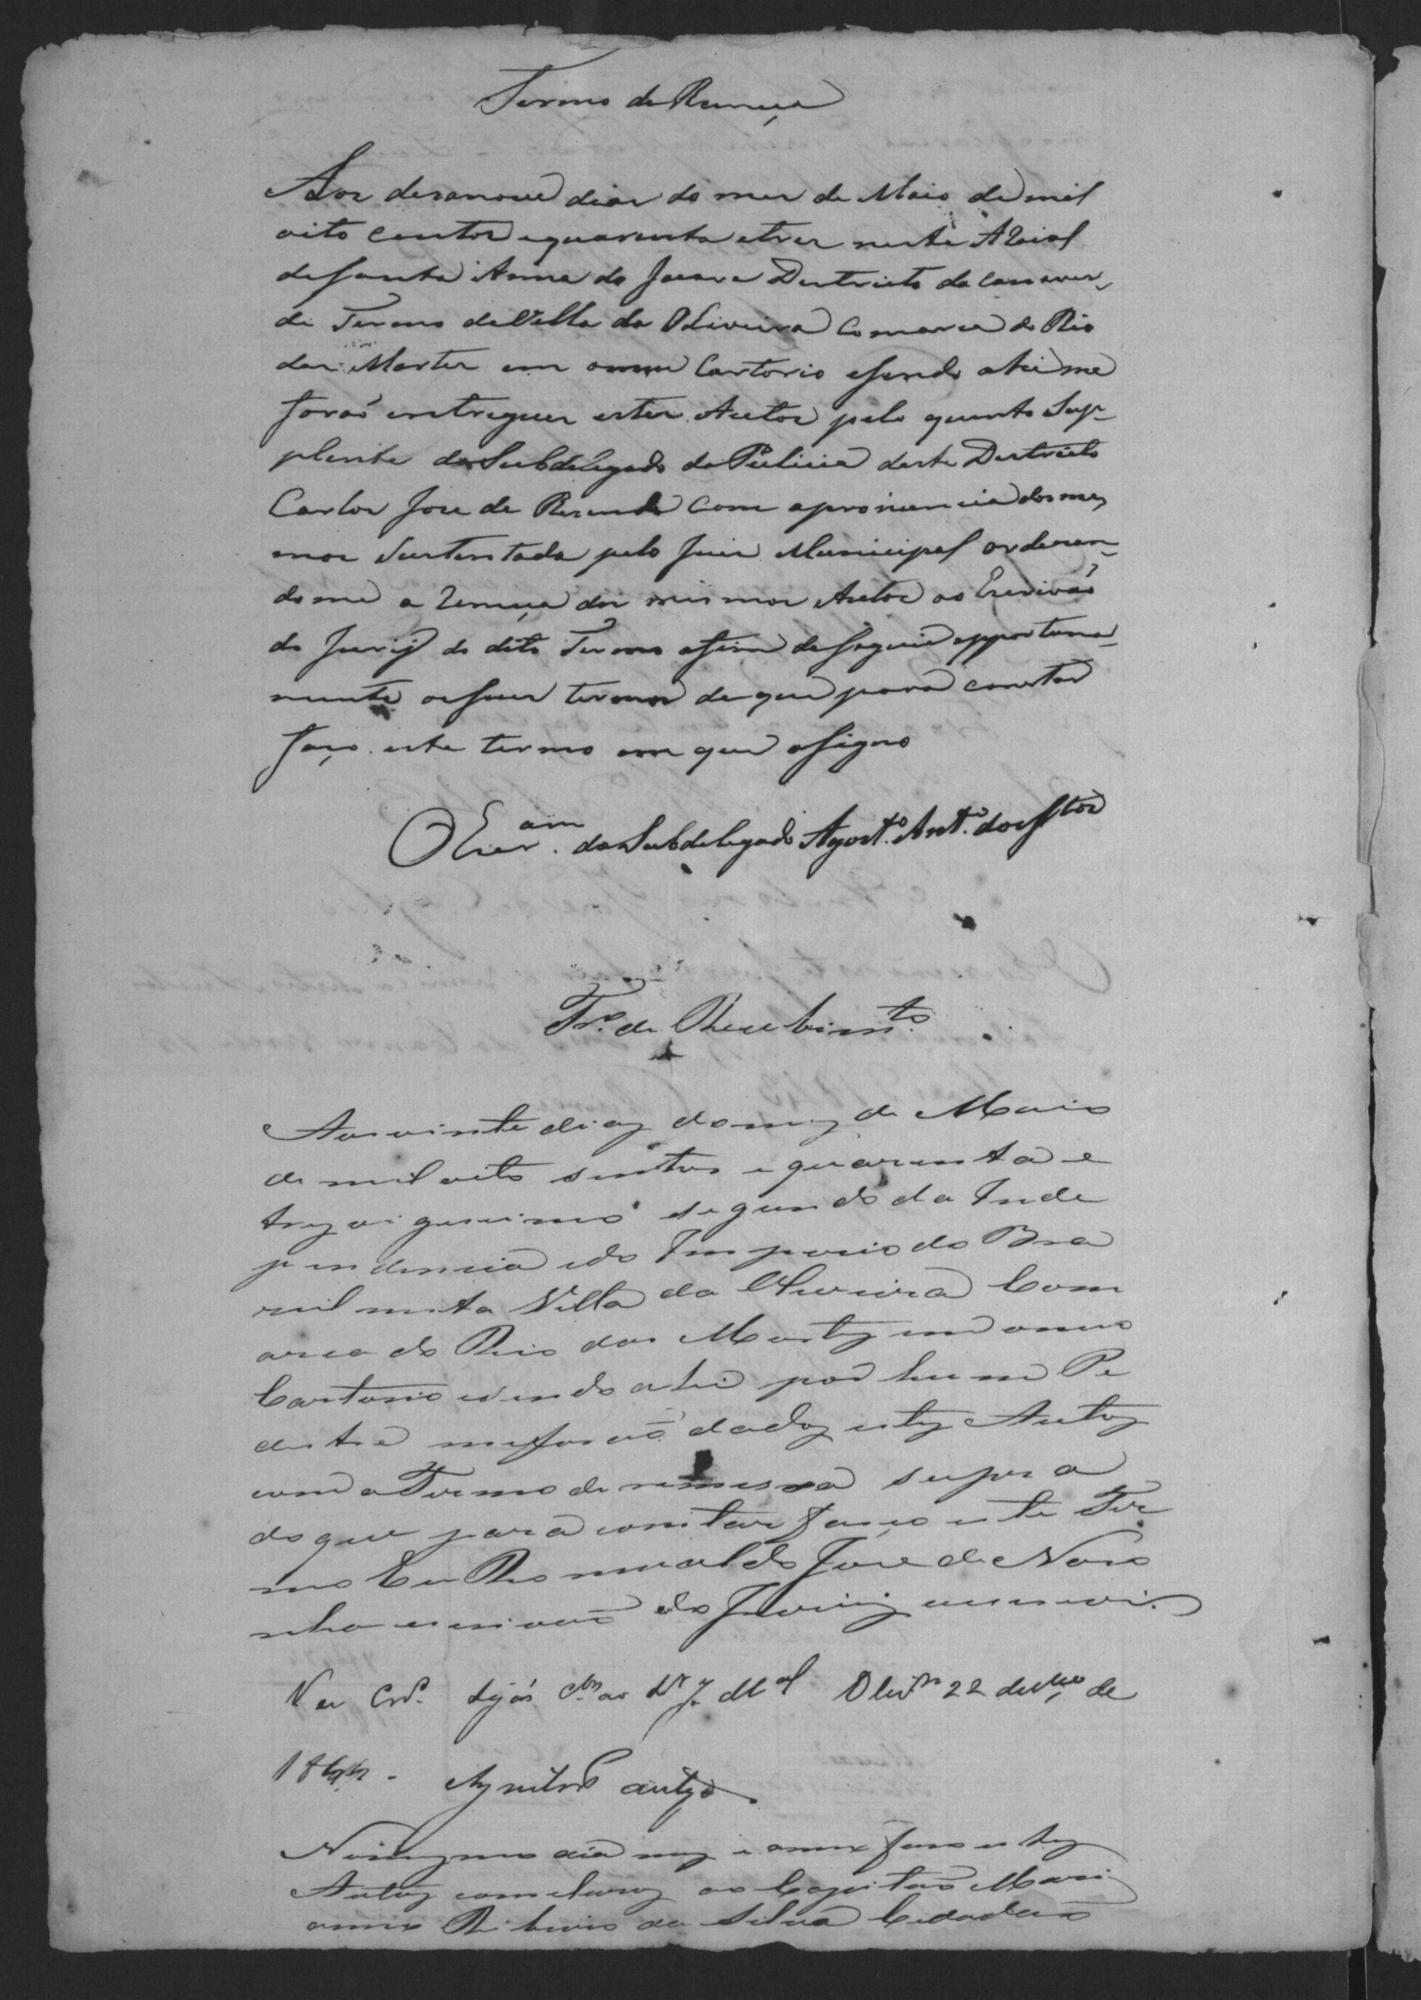 Termo de Remeça
Aos desanove dias do mes de Maio de mil
oito centos e quarenta e tres neste Araial
de Santa Anna do Jacare Destricto da Cana ver,
de Termo da Villa da Oliveira Comarca do Rio
das Mortes em o meu Cartorio e sendo ahi me
foraõ entregues estes Autos pelo quinto Sup-
plente do Subdelegado de Pulicia deste Destricto
Carlos Jose de Resende com a pronuncia dos mes,
mos Sustentada pelo Juis Municipal ordenan-
do me a remeça dos mesmos Autos ao Escrivaõ
do Jurij do dito Termo afim de seguir opportuna-
mente os seus termos de que para constar
faço este termo em que asigno
O Escr.am do Subdelegado Agost.o Ant.o dos Stos
Tr.o de Recebim.to
Aos vinte dias do mez de Maio
de mil oito sentos e quarenta e
trez vigesimo segundo da Inde
pendencia e do Imperio do Bra
zil nesta Villa da Oliveira Com
arca do Rio das Mortez em o meu
Cartorio e sendo ahi por hum Pe
destre me foraõ dados estez Autoz
com o Termo de remessa supra
do que para constar faço este Ter
mo Eu Romualdo Jose de Noro
nha escrivaõ do Jurij escrevi.
22 de de
1844 -
No mesmo dia mez e anno faço estez
Autoz concluzoz ao Capitaõ Mari
anno Ribeiro da Silva Cidadaõ